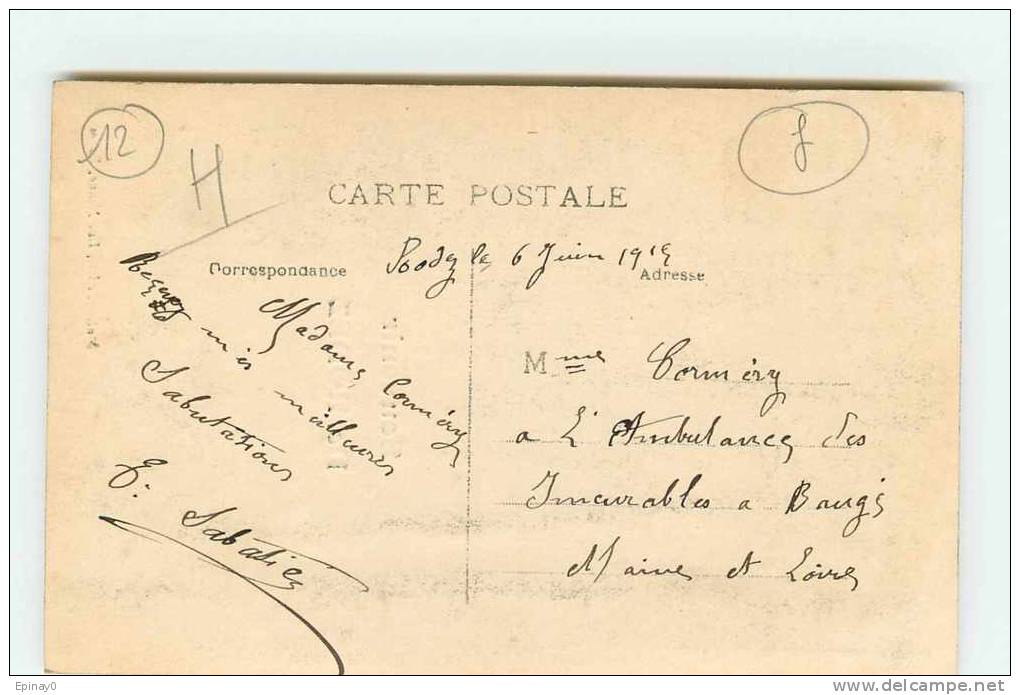 12
H
f
CARTE POSTALE
Rodez le 6 Juin 1915
Correspondance
Adresse
Madame Corméry
Recevez
mes meilleures
Salutations
E. Sabatier
Mme Corméry
a L'Ambulance des
Incurables a Baugé
Maine et Loire
Epinay0
delcampe.net